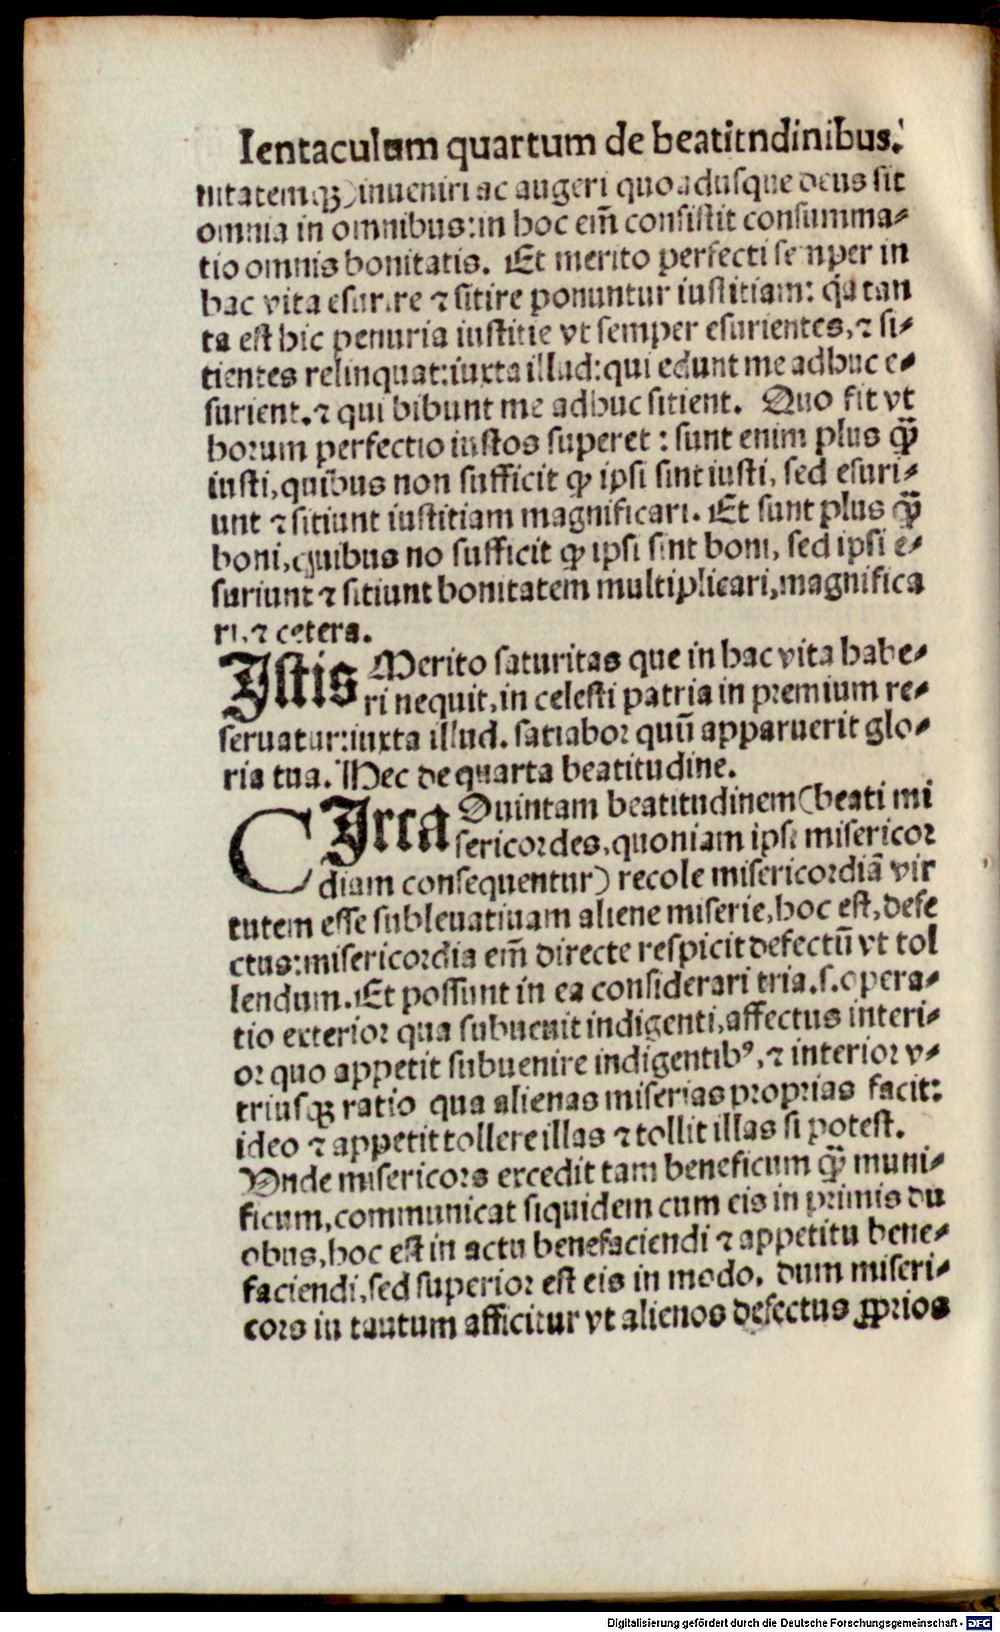 Ientaculum quartum de beatitndinibus.
nitatemqꝫ) inueniri ac augeri quoadusque deus sit
omnia in omnibus: in hoc em̄ consistit consumma⸗
tio omnis bonitatis. Et merito perfecti semper in
hac vita esurire ⁊ sitire ponuntur iustitiam: qa tan
ta est hic penuria iustitie vt semper esurientes, ⁊ si⸗
tientes relinquat: iuxta illud: qui edunt me adhuc e⸗
surient. ⁊ qui bibunt me adhuc sitient. Quo fit vt
horum perfectio iustos superet: sunt enim plus qꝫ̃
iusti, quibus non sufficit ꝙ ipsi sint iusti, sed esuri⸗
unt ⁊ sitiunt iustitiam magnificari. Et sunt plus qꝫ̃
boni, quibus no sufficit ꝙ ipsi sint boni, sed ipsi e⸗
suriunt ⁊ sitiunt bonitatem multiplicari, magnifica
ri, ⁊ cetera.
Istis Merito saturitas que in hac vita habe⸗
ri nequit, in celesti patria in premium re⸗
seruatur: iuxta illud. satiabor quū apparuerit glo⸗
ria tua. Hec de quarta beatitudine.
CIrca Quintam beatitudinem (beati mi
sericordes, quoniam ipsi misericor
diam consequentur) recole misericordiā vir
tutem esse subleuatiuam aliene miserie, hoc est, defe
ctus: misericordia em̄ directe respicit defectū vt tol
lendum. Et possunt in ea considerari tria. s. opera⸗
tio exterior qua subuenit indigenti, affectus interi⸗
or quo appetit subuenire indigentibꝰ, ⁊ interior v⸗
triusqꝫ ratio qua alienas miserias proprias facit:
ideo ⁊ appetit tollere illas ⁊ tollit illas si potest.
Vnde misericors excedit tam beneficum qꝫ̃ muni⸗
ficum, communicat siquidem cum eis in primis du
obus, hoc est in actu benefaciendi ⁊ appetitu bene⸗
faciendi, sed superior est eis in modo. dum miseri⸗
cors in tautum afficitur vt alienos defectus ꝓprios
Digitalisierung gefördert durch die Deutsche Forschungsgemeinschaft - DFG